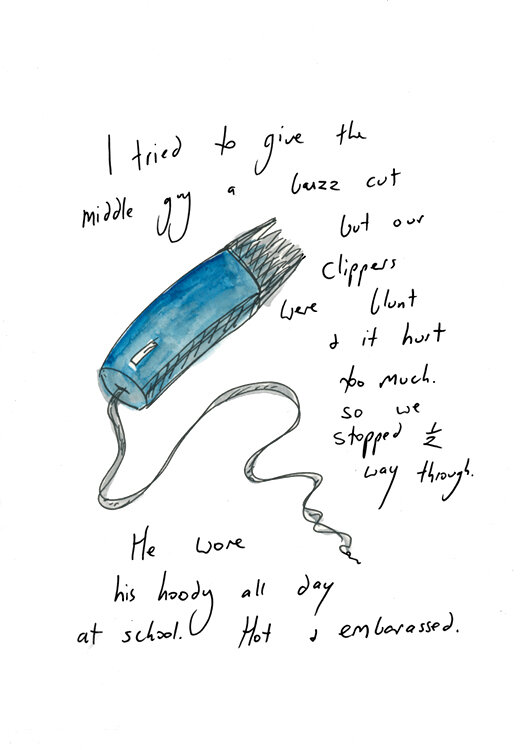 I tried to give the
middle guy a buzz cut
but our
clippers
were blunt
& it hurt
too much.
so we
stopped ½
way through.
He wore
his hoody all day
at school. Hot & embarassed.